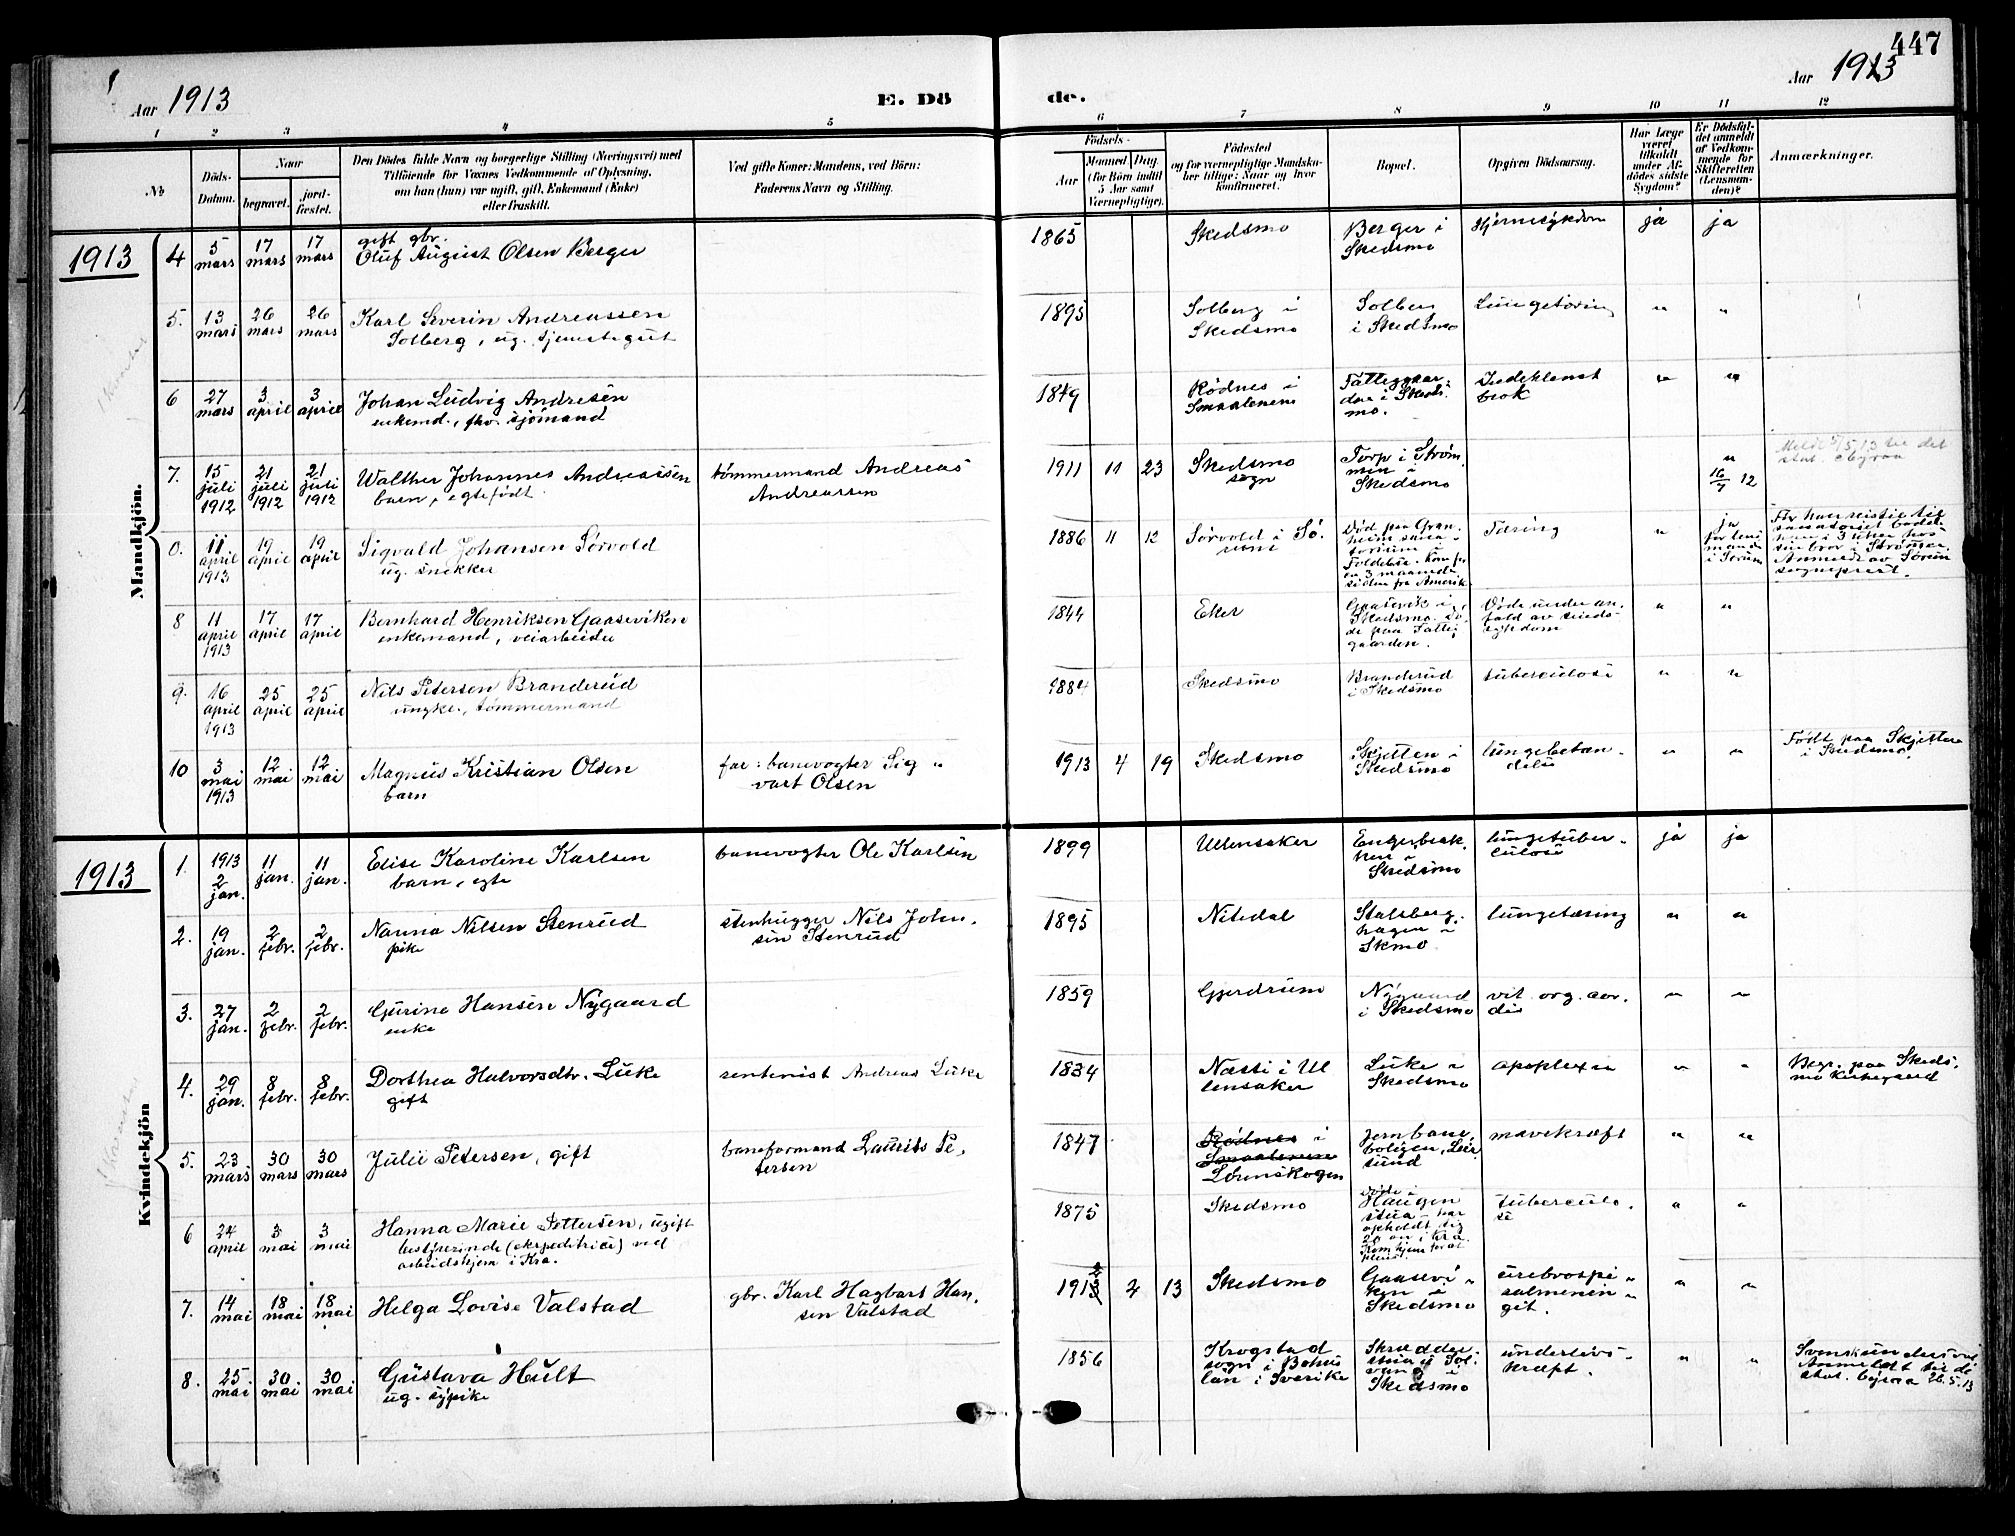 447
Aar 1913
E. Dö
de.
Aar 1913
1 2 3 4 5 6 7 8 9 10 11 12
No
Döds-
Datum.
Naar
begravet.
jord-
fæstet.
Den Dödes fulde Navn og borgerlige Stilling (Næringsvei) med
Tilföiende for Voxnes Vedkommende af Oplysning,
om han (hun) var ugift, gift, Enkemand (Enke)
eller fraskilt.
Ved gifte Koner: Mandens, ved Börn:
Faderens Navn og Stilling.
Födsels-
Aar
Maaned
(for Börn indtil
5 Aar samt
Værnepligtige).
Dag.
Födested
og for værnepligtige Mandska-
ber tillige: Naar og hvor
konfirmeret.
Bopæl.
Opgiven Dödsaarsag.
Har Læge
været
tilkaldt
under Af-
dödes sidste
Sygdom?
Er Dödsfal-
det anmeldt
af Vedkom-
mende for
Skifteretten
(Lensman-
den)?
Anmærkninger.
1913
Mandkjön.
4 5 mars 17 mars 17 mars
gift gbr.
Oluf August Olsen Berger
1865 Skedsmo
Berger i
Skedsmo
Hjernesykdom ja ja
5. 13 mars 26 mars 26 mars
Karl Severin Andreassen
Solberg, ug. tjenestegut
1895
Solberg i
Skedsmo
Solberg
i Skedsmo
Lungetæring " "
6 27 mars 3 april 3 april
Johan Ludvig Andresen
enkemd., fhv. sjömand
1849
Rödnes i
Smaalenene
Fattiggaar-
den i Skeds-
mo.
Indeklemt
brok " "
7. 15 juli 1912 21 juli 1912 21 juli 1912
Walther Johannes Andreassen
barn, egtefödt
tømmermand Andreas
Andreassen
1911 11 23
Skedsmo
sogn
Torp i Strøm-
men i
Skedsmo
"
16/7 12
0. 11 april 1913 19 april 19 april
Sigvald Johansen Sörvold
ug. snekker
1886 11 12
Sørvold i Sö-
rum
Död paa Gran-
heim sana-
torium i
Foldebu. Kom for
ca 3 maaneder
siden fra Amerika
Tæring " ja
for lens
mand
i Sørum
8 11 april 1913 17 april 17 april
Bernhard Henriksen Gaaseviken
enkemand, veiarbeider
1844 Eker
Gaasevik i
Skedsmo. Dö-
de paa Fattig-
gaarden.
Døde under an-
fald av sinds-
sykdom " "
9. 16 april 1913 25 april 25 april
Nils Petersen Branderud
ungkr., tømmermand
1884 Skedsmo
Branderud
i Skedsmo
tuberculosi " "
10 3 mai 1913 12 mai 12 mai
Magnus Kristian Olsen
barn
far: banevogter Sig-
vart Olsen
1913 4 19 Skedsmo
Skjetten i
Skedsmo
lungebetæn-
delse " "
Født paa Skjetten
i Skedsmo.
1913
Kvindekjön
1. 1913 2 jan. 11 jan. 11 jan.
Elise Karoline Karlsen
barn, egte
banevogter Ole Karlsen
1899 Ullensaker
Skedsmo
lungetuber-
culosi ja ja
2. 19 jan. 2 febr. 2 febr.
Nanna Nilsen Stenrud
pike
stenhugger Nils John-
sen Stenrud
1895 Nitedal
Stalsberg-
hagen i
Skmo
lungetæring " "
3. 27 jan. 2 febr. 2 febr.
Gurine Hansen Nygaard
enke
1859 Gjerdrum
Nygaard
i Skedsmo
vit. org. cor-
dis " "
4. 29 jan. 8 febr. 8 febr.
Dorthea Halvorsdtr. Luke
gift
rentenist Andreas Luke
1834
Næsti i Ul
lensaker
Luke i
Skedsmo
apoplexia " "
Begr. paa Skeds-
mo kirkegaard
5. 23 mars 30 mars 30 mars
Julie Petersen, gift
baneformand Laurits Pe-
tersen
1847
Rödnes i
Smaalenene
Lørenskogen
Jernbane-
boligen, Leir-
sund
mavekræft " "
6 24 april 3 mai 3 mai
Hanna Marie Pettersen, ugift
bestyrerinde (ekspeditrice) ved
arbeidshjem i Kra.
1875 Skedsmo
døde i
Haugen
stua - har
opholdt sig
20 aar i Kra.
tuberculo-
se " "
7. 14 mai 18 mai 18 mai
Helga Lovise Valstad
gbr. Karl Hagbart Han-
sen Valstad
1912 2 13 Skedsmo
Gaasevi-
ken i
Skedsmo
cerebrospi-
nalmenin-
git. " "
8. 25 mai 30 mai 30 mai
Gustava Hult
ug. sypike
1856
Krogstad
sogn i Bohus
län i Sverike
Skrædder-
stua i Sol-
vang i
Skedsmo
underlivs-
kræft. " "